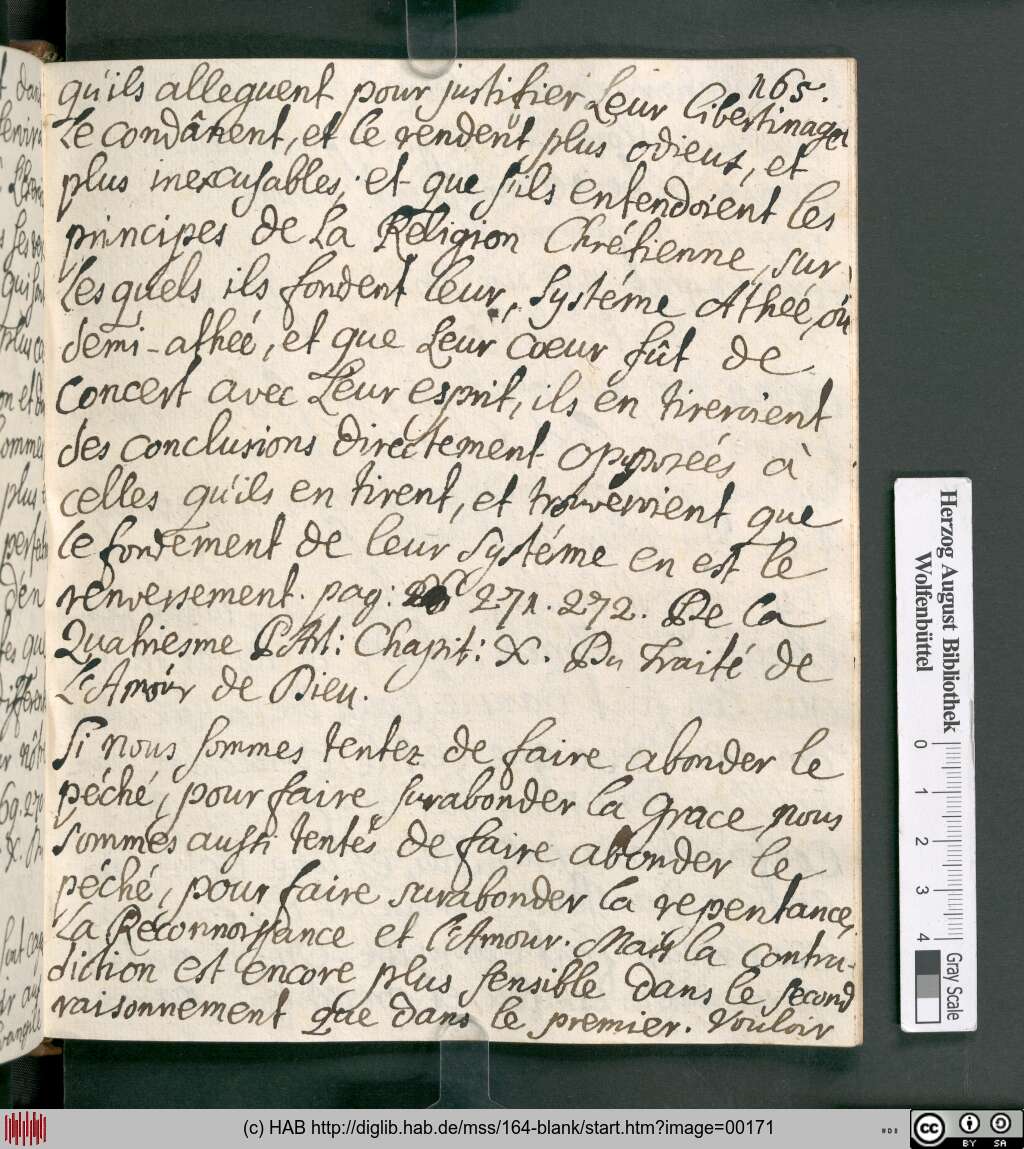 165.
qu'ils alleguent pour justifier Leur libertinage
Le condânent, et le rendent plus odieux, et
plus inexcusables, et que s'ils entendoient les
principes de La Religion Chrétienne, sur
Lesquels ils fondent leur, Systéme Athée, ou
demi-athée, et que Leur coeur fût de
concert avec Leur esprit, ils en tireroient
des conclusions directement opposées à
celles qu'ils en tirent, et trouveroient que
le fondement de leur Systéme en est le
renversement. pag: 271. 272. De la
Quatriesme PArt: Chapit: X. Du Traité de
L'Amour de Dieu.
Si nous sommes tentez de faire abonder le
péché, pour faire surabonder la grace nous
sommes aussi tentés de faire abonder le
péché, pour faire surabonder la repentance,
La Réconnoissance et l'Amour. Mais la contra-
diction est encore plus sensible dans le second
raisonnement que dans le premier. Vouloir
Herzog August Bibliothek
Wolfenbüttel
0 1 2 3 4
Gray Scale
(c) HAB http://diglib.hab.de/mss/164-blank/start.htm?image=00171
cc BY SA